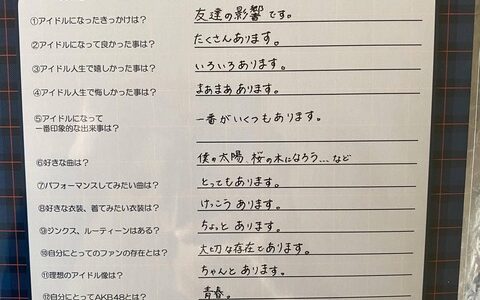 ①アイドルになったきっかけは？ 友達の影響です。
②アイドルになって良かった事は？ たくさんあります。
③アイドル人生で嬉しかった事は？ いろいろあります。
④アイドル人生で悔しかった事は？ まあまああります。
⑤アイドルになって
一番印象的な出来事は？ 一番がいくつもあります。
⑥好きな曲は？ 僕の太陽、桜の木になろう...など
⑦パフォーマンスしてみたい曲は？ とってもあります。
⑧好きな衣装、着てみたい衣装は？ けっこうあります。
⑨ジンクス、ルーティーンはある？ ちょっとあります。
⑩自分にとってのファンの存在とは？ 大切な存在であります。
⑪理想のアイドル像は？ ちゃんとあります。
⑫自分にとってAKB48とは？ 青春。